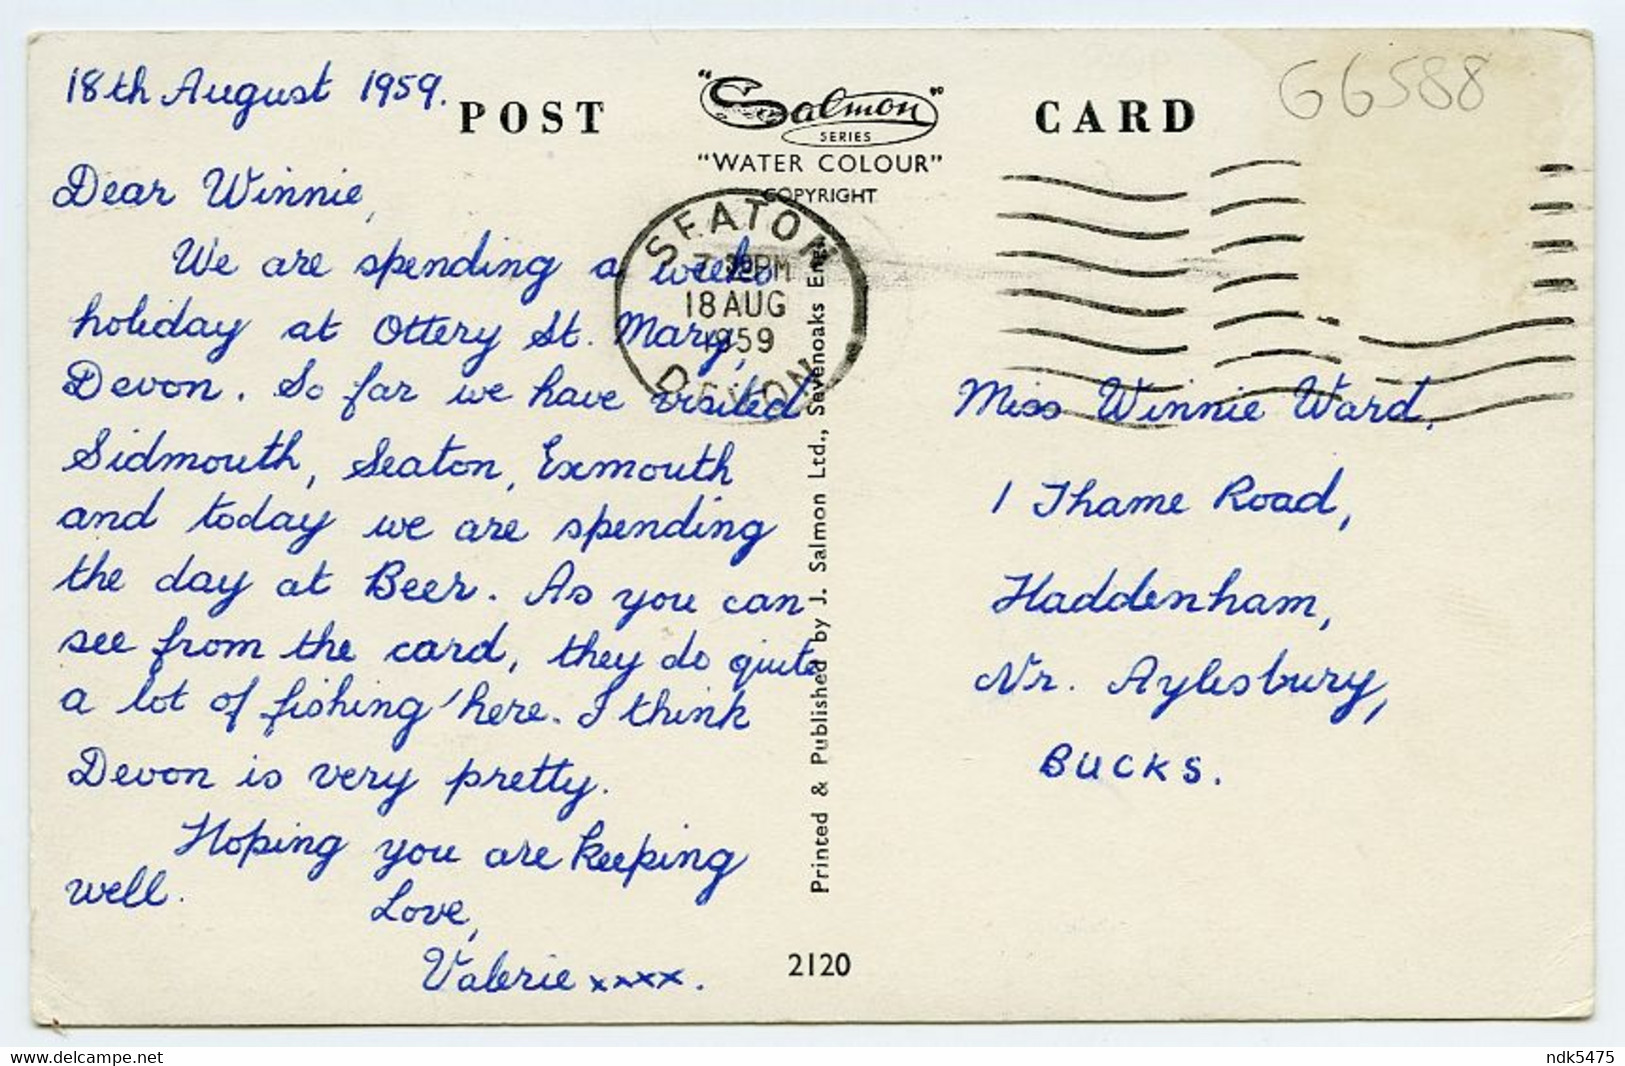 18th August 1959.
POST
"Salmon"
SERIES
"WATER COLOUR"
COPYRIGHT
CARD
G6588
SEATON
PM
18 AUG
1959
DEVON
Dear Winnie,
We are spending a weeks
holiday at Ottery St. Mary,
Devon. So far we have visited
Sidmouth, Seaton, Exmouth
and today we are spending
the day at Beer. As you can
see from the card, they do quite
a lot of fishing here. I think
Devon is very pretty.
Hoping you are keeping
well.
Love,
Valerie xxxx.
Printed & Published by J. Salmon Ltd., Sevenoaks Eng.
2120
Miss Winnie Ward,
1 Thame Road,
Haddenham,
Nr. Aylesbury,
BUCKS.
the world's best marketplace for collectors
ndk5475